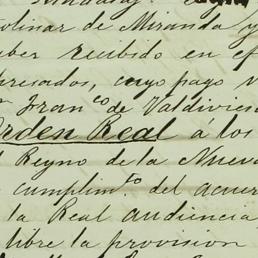 olinar de Miranda y
ber recibido en ef
resados, cuyo pago v
n Fran^co de Valdivies
Orden Real á los
l Reyno de la Nueva
cumplim^to del acuer
la Real audiencia
libre la provision